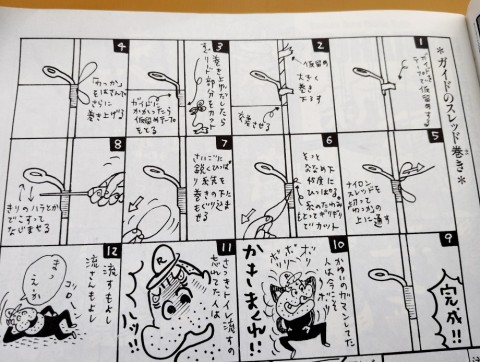 ＊ガイドのスレッド巻き＊
1
ガイドを
テープで
仮留めする
2
仮留め
大きく
巻き
下す
3
巻き上げだしたら
部分をカット
4
わっか
をはさんで
さらに
巻き上げる
ガイドに
かかったら
仮留めテープ
をとる
5
ナイロン
スレッドを
切って
わっかの
上に通す
6
そっと
ななめ下
に引っぱる
糸のたわみ
をとってギリギリ
でカット
7
さいごに
鋭くひっぱ
り糸先を
巻きの下に
もぐり込ま
せる
8
きりのハラとか
でこすって
なじませる
9
完成!!
10
かゆいのガマンしてた
人は今こそ
ボリ
ボリ
かきまくれ!!
11
さっきトイレ流すの
忘れてた人は
ハッ!!
R
12
流すもよし
流さんもよし
ゴロー
まっ
えっか